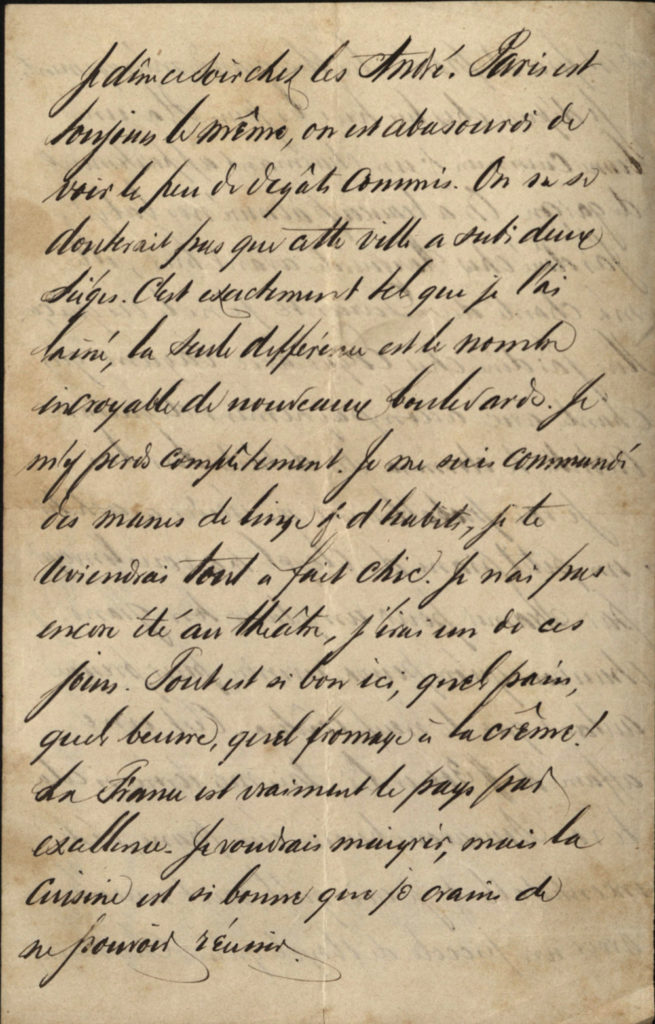 Je dîne ce soir chez les André. Paris est
toujours le même, on est abasourdi de
voir le peu de degâts commis. On ne se
douterait pas que cette ville a subi deux
siéges. C'est exactement tel que je l'ai
laissé, la seule différence est le nombre
incroyable de nouveaux boulevards. Je
m'y perds complètement. Je me suis commandé
des masses de linge & d'habits, je te
reviendrai tout à fait chic. Je n'ai pas
encore été au théâtre, j'irai un de ces
jours. Tout est si bon ici, quel pain,
quel beurre, quel fromage à la crême!
La France est vraiment le pays par
excellence. Je voudrais maigrir, mais la
cuisine est si bonne que je crains de
ne pouvoir réussir.